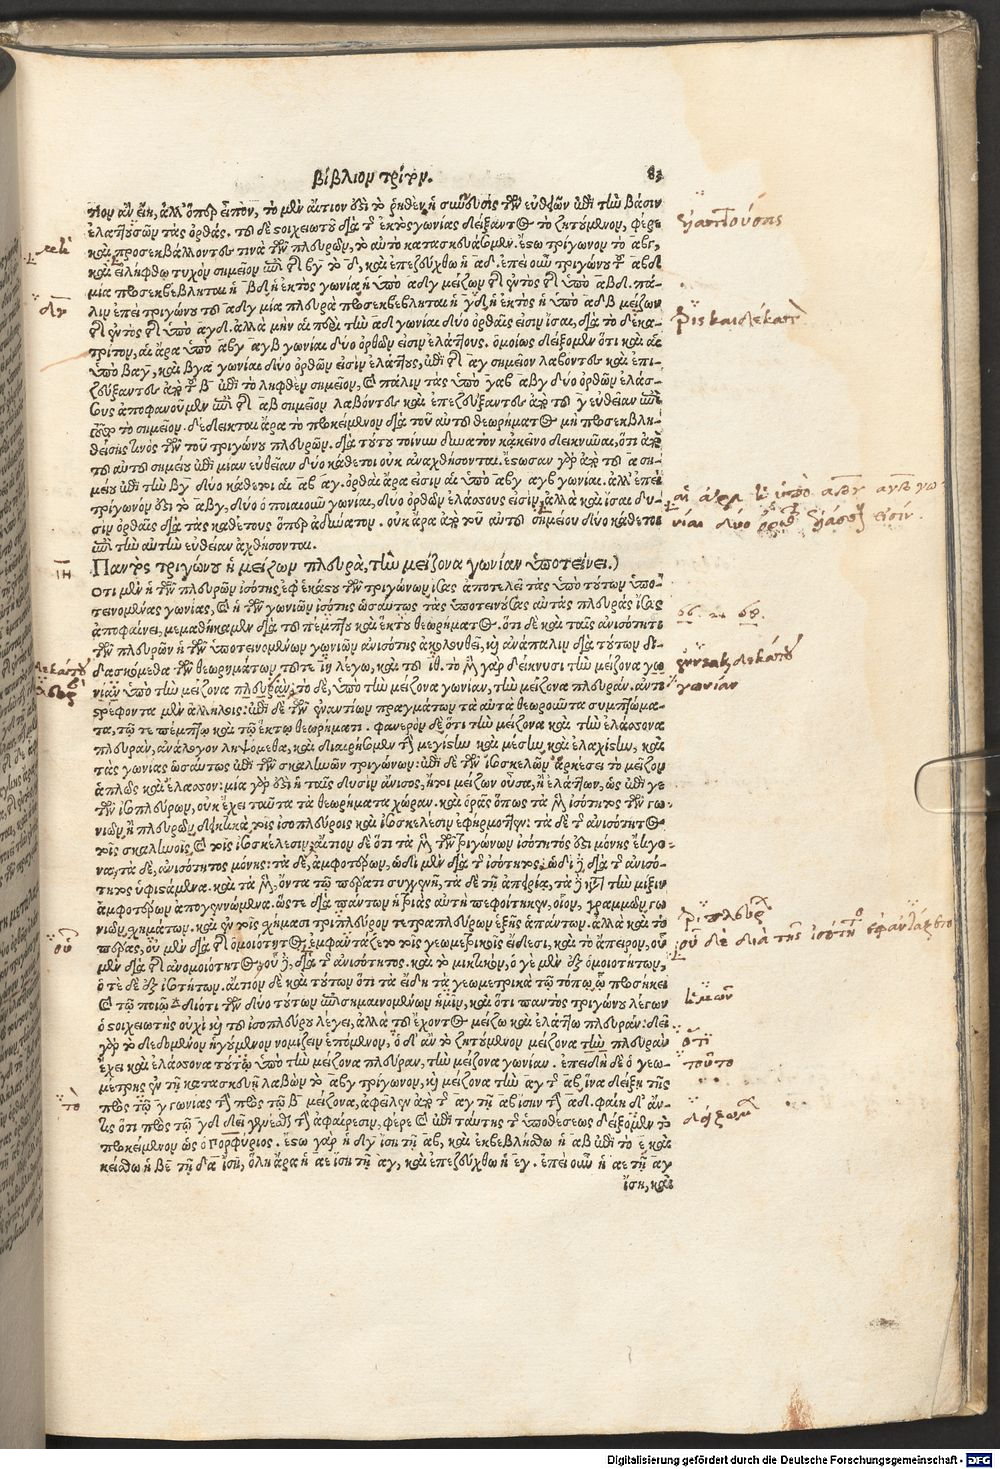 βιβλιον τρίτον. 83
τιον ἂν εἴη, ἀλλ' ὅπερ εἶπον, τὸ μὲν αἴτιον ὅτι τὸ ῥηθὲν ἡ σύννευσις τῶν εὐθειῶν ἐπὶ τὴν βάσιν
ἐλαττουσῶν τὰς ὀρθάς. τοῦ δὲ στοιχειωτοῦ διὰ τῆς ἐκτὸς γωνίας δείξαντος τὸ ζητούμενον, φέρε
καὶ μὴ προσεκβάλλοντες τινὰ τῶν πλευρῶν, τὸ αὐτὸ κατασκευάσωμεν. ἔστω τρίγωνον τὸ αβγ,
καὶ εἰλήφθω τυχὸν σημεῖον ἐπὶ τῆς βγ τὸ δ, καὶ ἐπεζεύχθω ἡ αδ. ἐπεὶ οὖν τριγώνου τοῦ αβδ
μία προσεκβέβληται ἡ βδ, ἡ ἐκτὸς γωνία ἡ ὑπὸ αδγ μείζων τῆς ἐντὸς τῆς ὑπὸ αβδ. πά-
λιν ἐπεὶ τριγώνου τοῦ αδγ μία πλευρὰ προσεκβέβληται ἡ γδ, ἡ ἐκτὸς ἡ ὑπὸ αδβ μείζων
τῆς ἐντὸς τῆς ὑπὸ αγδ. ἀλλὰ μὴν αἱ περὶ τὴν αδ γωνίαι δύο ὀρθαῖς εἰσιν ἴσαι, διὰ τὸ δέκα-
τρίτον, αἱ ἄρα ὑπὸ αβγ αγβ γωνίαι δύο ὀρθῶν εἰσιν ἐλάττους. ὁμοίως δείξομεν ὅτι καὶ αἱ
ὑπὸ βαγ, καὶ βγα γωνίαι δύο ὀρθῶν εἰσιν ἐλάττους, ἐπὶ τῆς αγ σημεῖον λαβόντες καὶ ἐπι-
ζεύξαντες ἀπὸ τοῦ β ἐπὶ τὸ ληφθὲν σημεῖον, καὶ πάλιν τὰς ὑπὸ γαβ αβγ δύο ὀρθῶν ἐλάσ-
σους ἀποφανοῦμεν ἐπὶ τῆς αβ σημεῖον λαβόντες καὶ ἐπεζεύξαντες ἀπὸ τοῦ γ εὐθεῖαν ἐπὶ
τὸ σημεῖον. δέδεικται ἄρα τὸ προκείμενον διὰ τοῦ αὐτοῦ θεωρήματος μὴ προσεκβλη-
θείσης τινὸς τῶν τοῦ τριγώνου πλευρῶν. διὰ τούτου τοίνυν δυνατὸν κἀκεῖνο δεικνῦναι, ὅτι ἀπὸ
τοῦ αὐτοῦ σημείου ἐπὶ μίαν εὐθεῖαν δύο κάθετοι οὐκ ἀναχθήσονται. ἔστωσαν γὰρ ἀπὸ τοῦ α ση-
μείου ἐπὶ τὴν βγ δύο κάθετοι αἱ αβ αγ. ὀρθαὶ ἄρα εἰσιν αἱ ὑπὸ αβγ αγβ γωνίαι. ἀλλ' ἐπεὶ
τρίγωνόν ἐστι τὸ αβγ, δύο ὁποιαιοῦν γωνίαι, δύο ὀρθῶν ἐλάσσους εἰσὶν, ἀλλὰ καὶ ἴσαι δυ-
σὶν ὀρθαῖς διὰ τὰς καθέτους ὅπερ ἀδύνατον. οὐκ ἄρα ἀπὸ τοῦ αὐτοῦ σημείου δύο κάθετοι
ἐπὶ τὴν αὐτὴν εὐθεῖαν ἀχθήσονται.
Παντὸς τριγώνου ἡ μείζων πλευρὰ, τὴν μείζονα γωνίαν ὑποτείνει.)
Οτι μὲν ἡ τῶν πλευρῶν ἰσότης ἐφ' ἑκάστου τῶν τριγώνων ἴσας ἀποτελεῖ τὰς ὑπὸ τούτων ὑπο-
τεινομένας γωνίας, καὶ ἡ τῶν γωνιῶν ἰσότης ὡσαύτως τὰς ὑποτεινούσας αὐτὰς πλευρὰς ἴσας
ἀποφαίνει, μεμαθήκαμεν διὰ τοῦ πέμπτου καὶ ἕκτου θεωρήματος. ὅτι δὲ καὶ ταῖς ἀνισότησι
τῶν πλευρῶν ἡ τῶν ὑποτεινομένων γωνιῶν ἀνισότης ἀκολουθεῖ, καὶ ἀνάπαλιν διὰ τούτων δι-
δασκόμεθα τῶν θεωρημάτων, τοῦ τε ιη λέγω, καὶ τοῦ ιθ. τὸ μὲν γὰρ δείκνυσι τὴν μείζονα γω
νίαν ὑπὸ τὴν μείζονα πλευρὰν, τὸ δὲ, ὑπὸ τὴν μείζονα γωνίαν, τὴν μείζονα πλευράν. ἀντι
στρέφοντα μὲν ἀλλήλοις: ἐπὶ δὲ τῶν ἐναντίων πραγμάτων τὰ αὐτὰ θεωροῦντα συμπτώμα-
τα, τῷ τε πέμπτῳ καὶ τῷ ἕκτῳ θεωρήματι. φανερὸν δὲ ὅτι τὴν μείζονα καὶ τὴν ἐλάσσονα
πλευρὰν, ἀνάλογον ληψόμεθα, καὶ διαιρήσομεν τὴν μεγίστην καὶ μέσην, καὶ ἐλαχίστην, καὶ
τὰς γωνίας ὡσαύτως ἐπὶ τῶν σκαληνῶν τριγώνων: ἐπὶ δὲ τῶν ἰσοσκελῶν ἀρκέσει τὸ μεῖζον
ἁπλῶς καὶ ἔλασσον: μία γάρ ἐστιν ἡ ταῖς δυσὶν ἄνισος, ἤτοι μείζων οὖσα, ἢ ἐλάττων, ὡς ἐπί γε
τῶν ἰσοπλεύρων, οὐκ ἔχει ταῦτα τὰ θεωρήματα χώραν. καὶ ὁρᾷς ὅπως τὰ μὲν ἰσότητος τῶν γω-
νιῶν, ἢ πλευρῶν δεικτικὰ τοῖς ἰσοπλεύροις καὶ ἰσοσκέλεσιν ἐφήρμοττεν: τὰ δὲ τῆς ἀνισότητος
τοῖς σκαληνοῖς, καὶ τοῖς ἰσοσκέλεσιν: αἴτιον δὲ ὅτι τὰ μὲν τῶν τριγώνων ἰσότητός ἐστι μόνης ἔκγο-
να, τὰ δὲ, ἀνισότητος μόνης: τὰ δὲ, ἀμφοτέρων, ὡδὶ μὲν διὰ τῆς ἰσότητος, ὡδὶ δὲ διὰ τῆς ἀνισό-
τητος ὑφιστάμενα. καὶ τὰ μὲν, ὄντα τῷ πέρατι συγγενῆ, τὰ δὲ τῇ ἀπειρίᾳ, τὰ δὲ κατὰ τὴν μίξιν
ἀμφοτέρων ἀπογεννώμενα. ὥστε διὰ πάντων ἡ τριὰς αὕτη πεφοίτηκεν, οἷον, γραμμῶν, γω
νιῶν, σχημάτων. καὶ ἐν τοῖς σχήμασι τριπλεύρου τετραπλεύρων ἑξῆς ἁπάντων. ἀλλὰ καὶ τὸ
πέρας, οὗ μὲν διὰ τῆς ὁμοιότητος, ἐμφαντάζεται τοῖς γεωμετρικοῖς εἴδεσι, καὶ τὸ ἄπειρον, οὗ
μὲν διὰ τῆς ἀνομοιότητος, οὗ δὲ, διὰ τῆς ἀνισότητος. καὶ τὸ μικτικὸν, ὁ γε μὲν ἐξ ὁμοιοτήτων,
ὁ τε δὲ ἐξ ἰσοτήτων. αἴτιον δὲ καὶ τούτων ὅτι τὰ εἴδη τὰ γεωμετρικὰ τῷ τόπῳ ᾧ προσήκει
καὶ τῷ ποιῷ διότι τῶν δύο τούτων ἐπισημαινομένων ἡμῖν, καὶ ὅτι παντὸς τριγώνου λέγων
ὁ στοιχειωτὴς οὐχὶ καὶ τοῦ ἰσοπλεύρου λέγει, ἀλλὰ τοῦ ἔχοντος μείζω καὶ ἐλάττω πλευράν: δεῖ
γὰρ τὸ δεδομένον ἡγούμενον νομίζειν ἑπόμενον, ὁ δ' ἂν τὸ ζητούμενον μείζονα τὴν πλευρὰν
ἔχει καὶ ἐλάσσονα τούτῳ ὑπὸ τὴν μείζονα πλευρὰν, τὴν μείζονα γωνίαν. ἐπειδὴ δὲ ὁ γεω-
μέτρης ἐν τῇ κατασκευῇ λαβὼν τὸ αβγ τρίγωνον, καὶ μείζονα τὴν αγ τῆς αβ, ἵνα δείξῃ τῆς
πρὸς τῷ γ γωνίας τὴν πρὸς τῷ β μείζονα, ἀφεῖλεν ἀπὸ τῆς αγ τῇ αβ ἴσην τὴν αδ. φαίη δ' ἄν
τις ὅτι πρὸς τῷ γδ δεῖ γενέσθαι τὴν ἀφαίρεσιν, φέρε καὶ ἐπὶ ταύτης τῆς ὑποθέσεως δείξομεν τὸ
προκείμενον ὡς ὁ Πορφύριος. ἔστω γὰρ ἡ δγ ἴση τῇ αβ, καὶ ἐκβεβλήσθω ἡ αβ ἐπὶ τὸ ε καὶ
κείσθω ἡ βε τῇ δα ἴση, ὅλη ἄρα ἡ αε ἴση τῇ αγ, καὶ ἐπεζεύχθω ἡ εγ. ἐπεὶ οὖν ἡ αε τῇ αγ
ἴση, καὶ
τρισκαιδέκατον
ιη
γωνίαν
οὗ
ὅτι
τοῦτο
τὸ
Digitalisierung gefördert durch die Deutsche Forschungsgemeinschaft - DFG